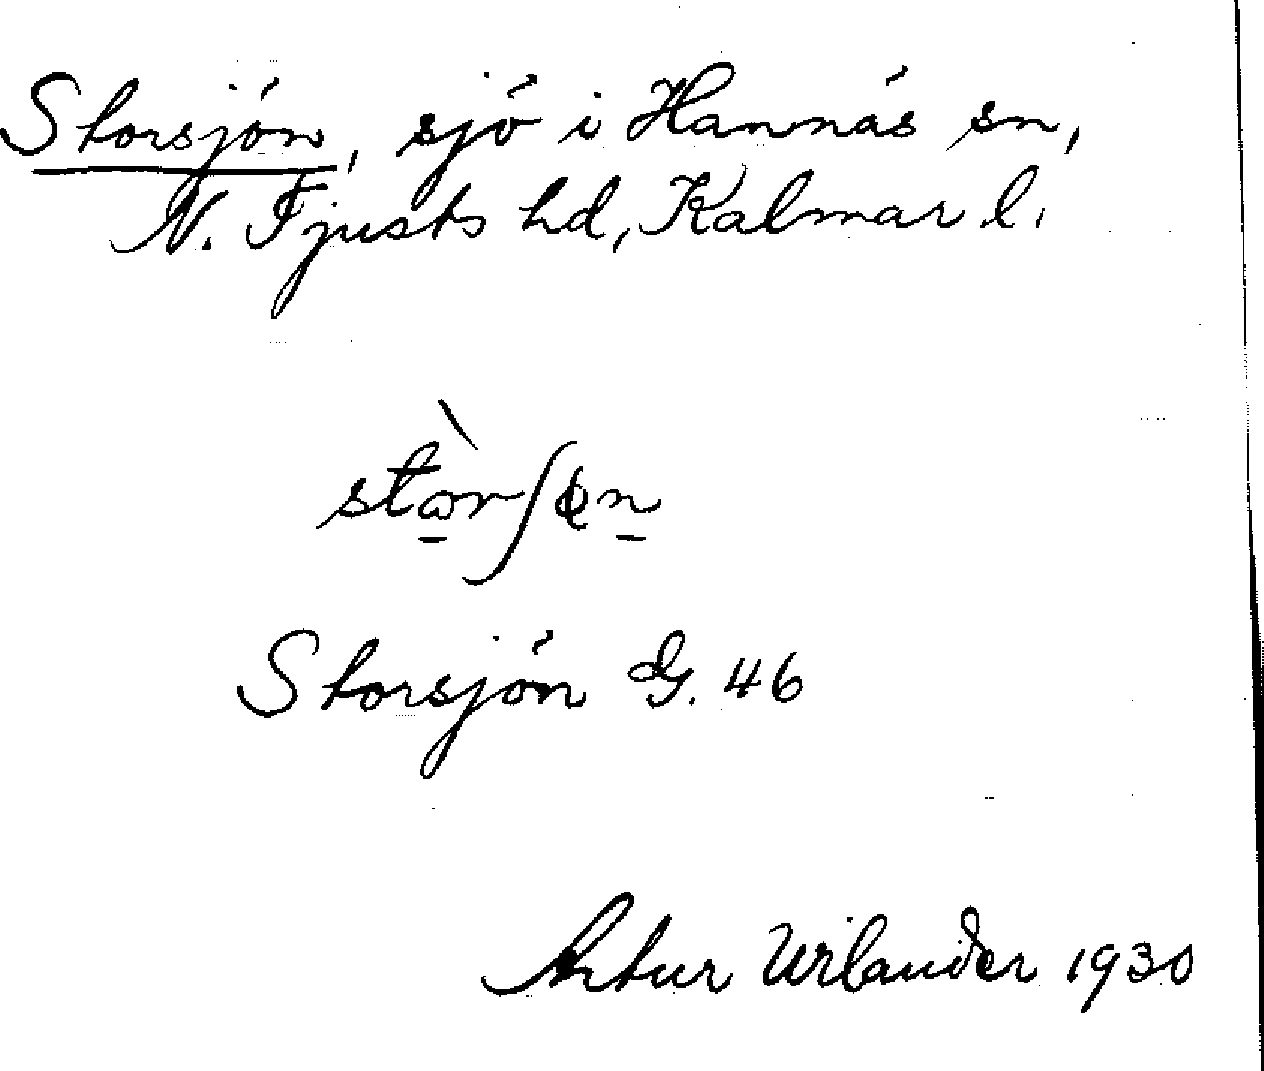 Storsjön, sjö i Hannäs sn,
N. Tjusts hd, Kalmar l.
Storsjön G. 46
Artur Wilander 1930